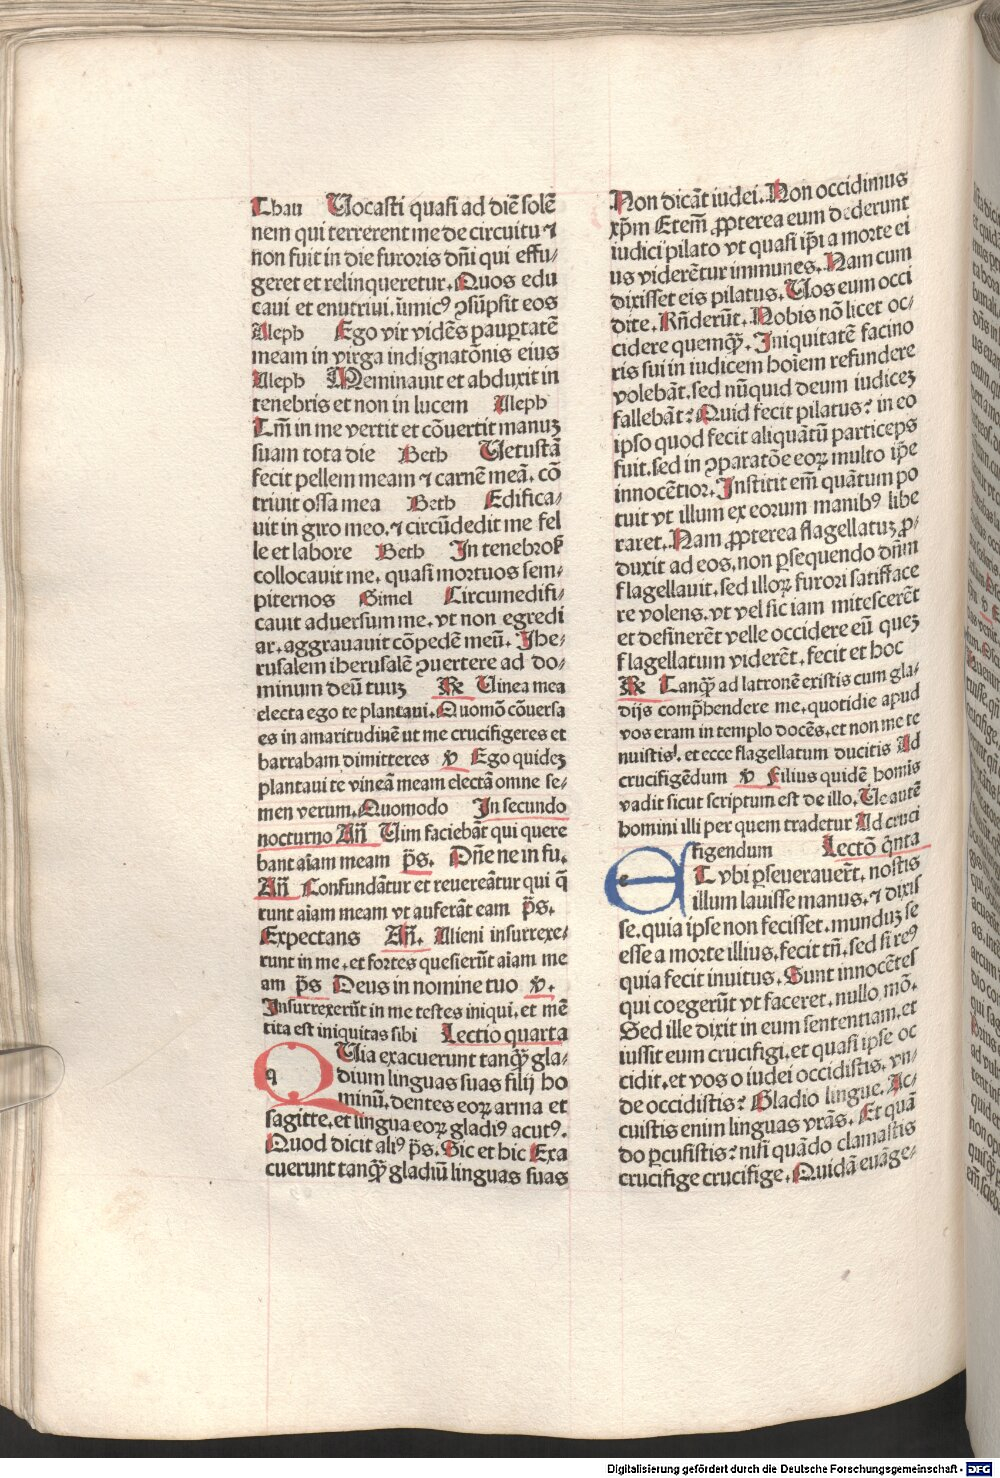 Thau Uocasti quasi ad diē solē
nem qui terrerent me de circuitu ⁊
non fuit in die furoris dn̄i qui effu⸗
geret et relinqueretur. Quos edu
caui et enutriui. iīmicꝰ ↄsūpsit eos
Aleph Ego vir vidēs pauꝑtatē
meam in virga indignatōnis eius
Aleph Meminauit et abduxit in
tenebris et non in lucem Aleph
Tm̄ in me vertit et cōuertit manuꝫ
suam tota die Beth Uetustā
fecit pellem meam ⁊ carnē meā. cō
triuit ossa mea Beth Edifica⸗
uit in giro meo. ⁊ circūdedit me fel
le et labore Beth In tenebroſ
collocauit me. quasi mortuos sem⸗
piternos Gimel Circumedifi⸗
cauit aduersum me. vt non egredi
ar. aggrauauit cōpedē meū. Jhe⸗
rusalem iherusalē ↄuertere ad do⸗
minum deū tuuꝫ R̄e Uinea mea
electa ego te plantaui. Quomō cōuersa
es in amaritudinē ut me crucifigeres et
barrabam dimitteres v̄ Ego quideꝫ
plantaui te vineā meam electā omne se⸗
men verum. Quomodo In secundo
nocturno Añ Uim faciebāt qui quere
bant aīam meam p̄s. Dn̄e ne in fu.
Añ Confundātur et reuereātur qui q̄
runt aīam meam vt auferāt eam p̄s.
Expectans Añ. Alieni insurrexe⸗
runt in me. et fortes quesierūt aīam me
am p̄s Deus in nomine tuo v̄.
Insurrexerūt in me testes iniqui. et mē
tita est iniquitas sibi Lectio quarta
q Uia exacuerunt tanꝙ̄ gla⸗
dium linguas suas filij ho
minū. dentes eoꝝ arma et
sagitte. et lingua eoꝝ gladiꝰ acutꝰ.
Quod dicit aliꝰ p̄s. Sic et hic Exa
cuerunt tanꝙ̄ gladiū linguas suas
Non dicāt iudei. Non occidimus
xp̄m Etem̄ ꝓpterea eum dederunt
iudici pilato vt quasi ip̄i a morte ei
us viderētur immunes. Nam cum
dixisset eis pilatus. Uos eum occi
dite. Rn̄derūt. Nobis nō licet oc⸗
cidere quemꝙ̄. Iniquitatē facino
ris sui in iudicem hoīem refundere
volebāt. sed nūquid deum iudiceꝫ
fallebāt? Quid fecit pilatus? in eo
ipso quod fecit aliquātū particeps
fuit. sed in ↄparatōe eoꝝ multo ip̄e
innocētior. Institit em̄ quātum po
tuit vt illum ex eorum manibꝰ libe
raret. Nam ꝓpterea flagellatuꝫ ꝓ⸗
duxit ad eos. non ꝑsequendo dn̄m
flagellauit. sed illoꝝ furori satisface
re volens. vt vel sic iam mitescerēt
et desinerēt velle occidere eū queꝫ
flagellatum viderēt. fecit et hoc
R̄e Tanꝙ̄ ad latronē existis cum gla⸗
dijs comp̄hendere me. quotidie apud
vos eram in templo docēs. et non me te
nuistis. et ecce flagellatum ducitis Ad
crucifigēdum v̄ Filius quidē homīs
vadit sicut scriptum est de illo. Ue autē
homini illi per quem tradetur Ad cruci
figendum Lectō q̄nta
e T vbi ꝑseuerauer̄t. nostis
illum lauisse manus. ⁊ dixis
se. quia ipse non fecisset. munduꝫ se
esse a morte illius. fecit tn̄. sed si reꝰ
quia fecit inuitus. Sunt innocētes
qui coegerūt vt faceret. nullo mō.
Sed ille dixit in eum sententiam. et
iussit eum crucifigi. et quasi ipse oc
cidit. et vos o iudei occidistis. vn⸗
de occidistis? Gladio lingue. Ac⸗
cuistis enim linguas vrās. Et quā
do ꝑcusistis? nisi quādo clamastis
crucifige crucifige. Quidā euāge⸗
Digitalisierung gefördert durch die Deutsche Forschungsgemeinschaft - DFG